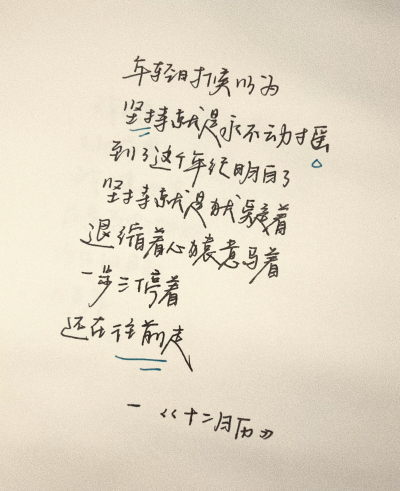 年轻时候以为
坚持就是永不动摇
到了这个年纪明白了
坚持就是犹疑着
退缩着心猿意马着
一步三停着
还在往前走
—《十二月历》